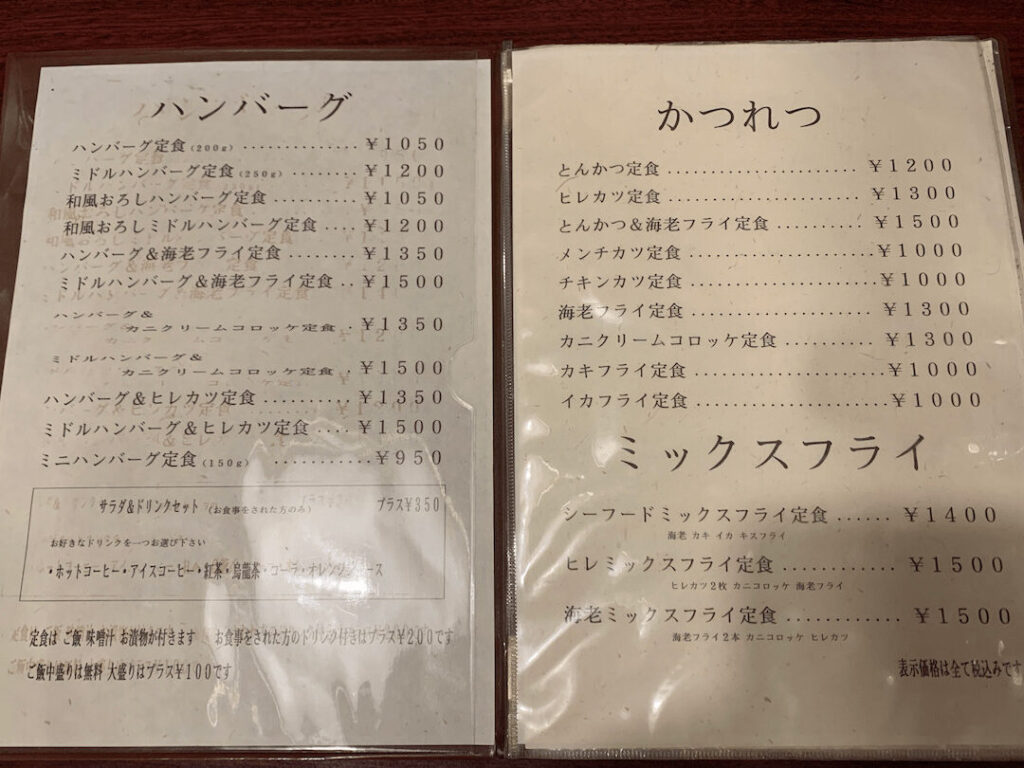 ハンバーグ
ハンバーグ定食(200g) .............. ¥1050
ミドルハンバーグ定食(250g) ........ ¥1200
和風おろしハンバーグ定食 ............ ¥1050
和風おろしミドルハンバーグ定食 .... ¥1200
ハンバーグ&海老フライ定食 ........ ¥1350
ミドルハンバーグ&海老フライ定食 .. ¥1500
ハンバーグ&
カニクリームコロッケ定食 . ¥1350
ミドルハンバーグ&
カニクリームコロッケ定食 . ¥1500
ハンバーグ&ヒレカツ定食 ........... ¥1350
ミドルハンバーグ&ヒレカツ定食 .... ¥1500
ミニハンバーグ定食(150g) ............ ¥950
サラダ&ドリンクセット (お食事をされた方のみ) プラス¥350
お好きなドリンクを一つお選び下さい
・ホットコーヒー・アイスコーヒー・紅茶・烏龍茶・コーラ・オレンジジュース
定食は ご飯 味噌汁 お漬物が付きます お食事をされた方のドリンの付きはプラス¥200です
ご飯中盛りは無料 大盛りはプラス¥100です
かつれつ
とんかつ定食 ........................ ¥1200
ヒレカツ定食 ........................ ¥1300
とんかつ&海老フライ定食 ........... ¥1500
メンチカツ定食 ...................... ¥1000
チキンカツ定食 ...................... ¥1000
海老フライ定食 ...................... ¥1300
カニクリームコロッケ定食 .......... ¥1300
カキフライ定食 ...................... ¥1000
イカフライ定食 ...................... ¥1000
ミックスフライ
シーフードミックスフライ定食 ...... ¥1400
海老 カキ イカ キスフライ
ヒレミックスフライ定食 ............ ¥1500
ヒレカツ2枚 カニコロッケ 海老フライ
海老ミックスフライ定食 ............ ¥1500
海老フライ2本 カニコロッケ ヒレカツ
表示価格は全て税込みです